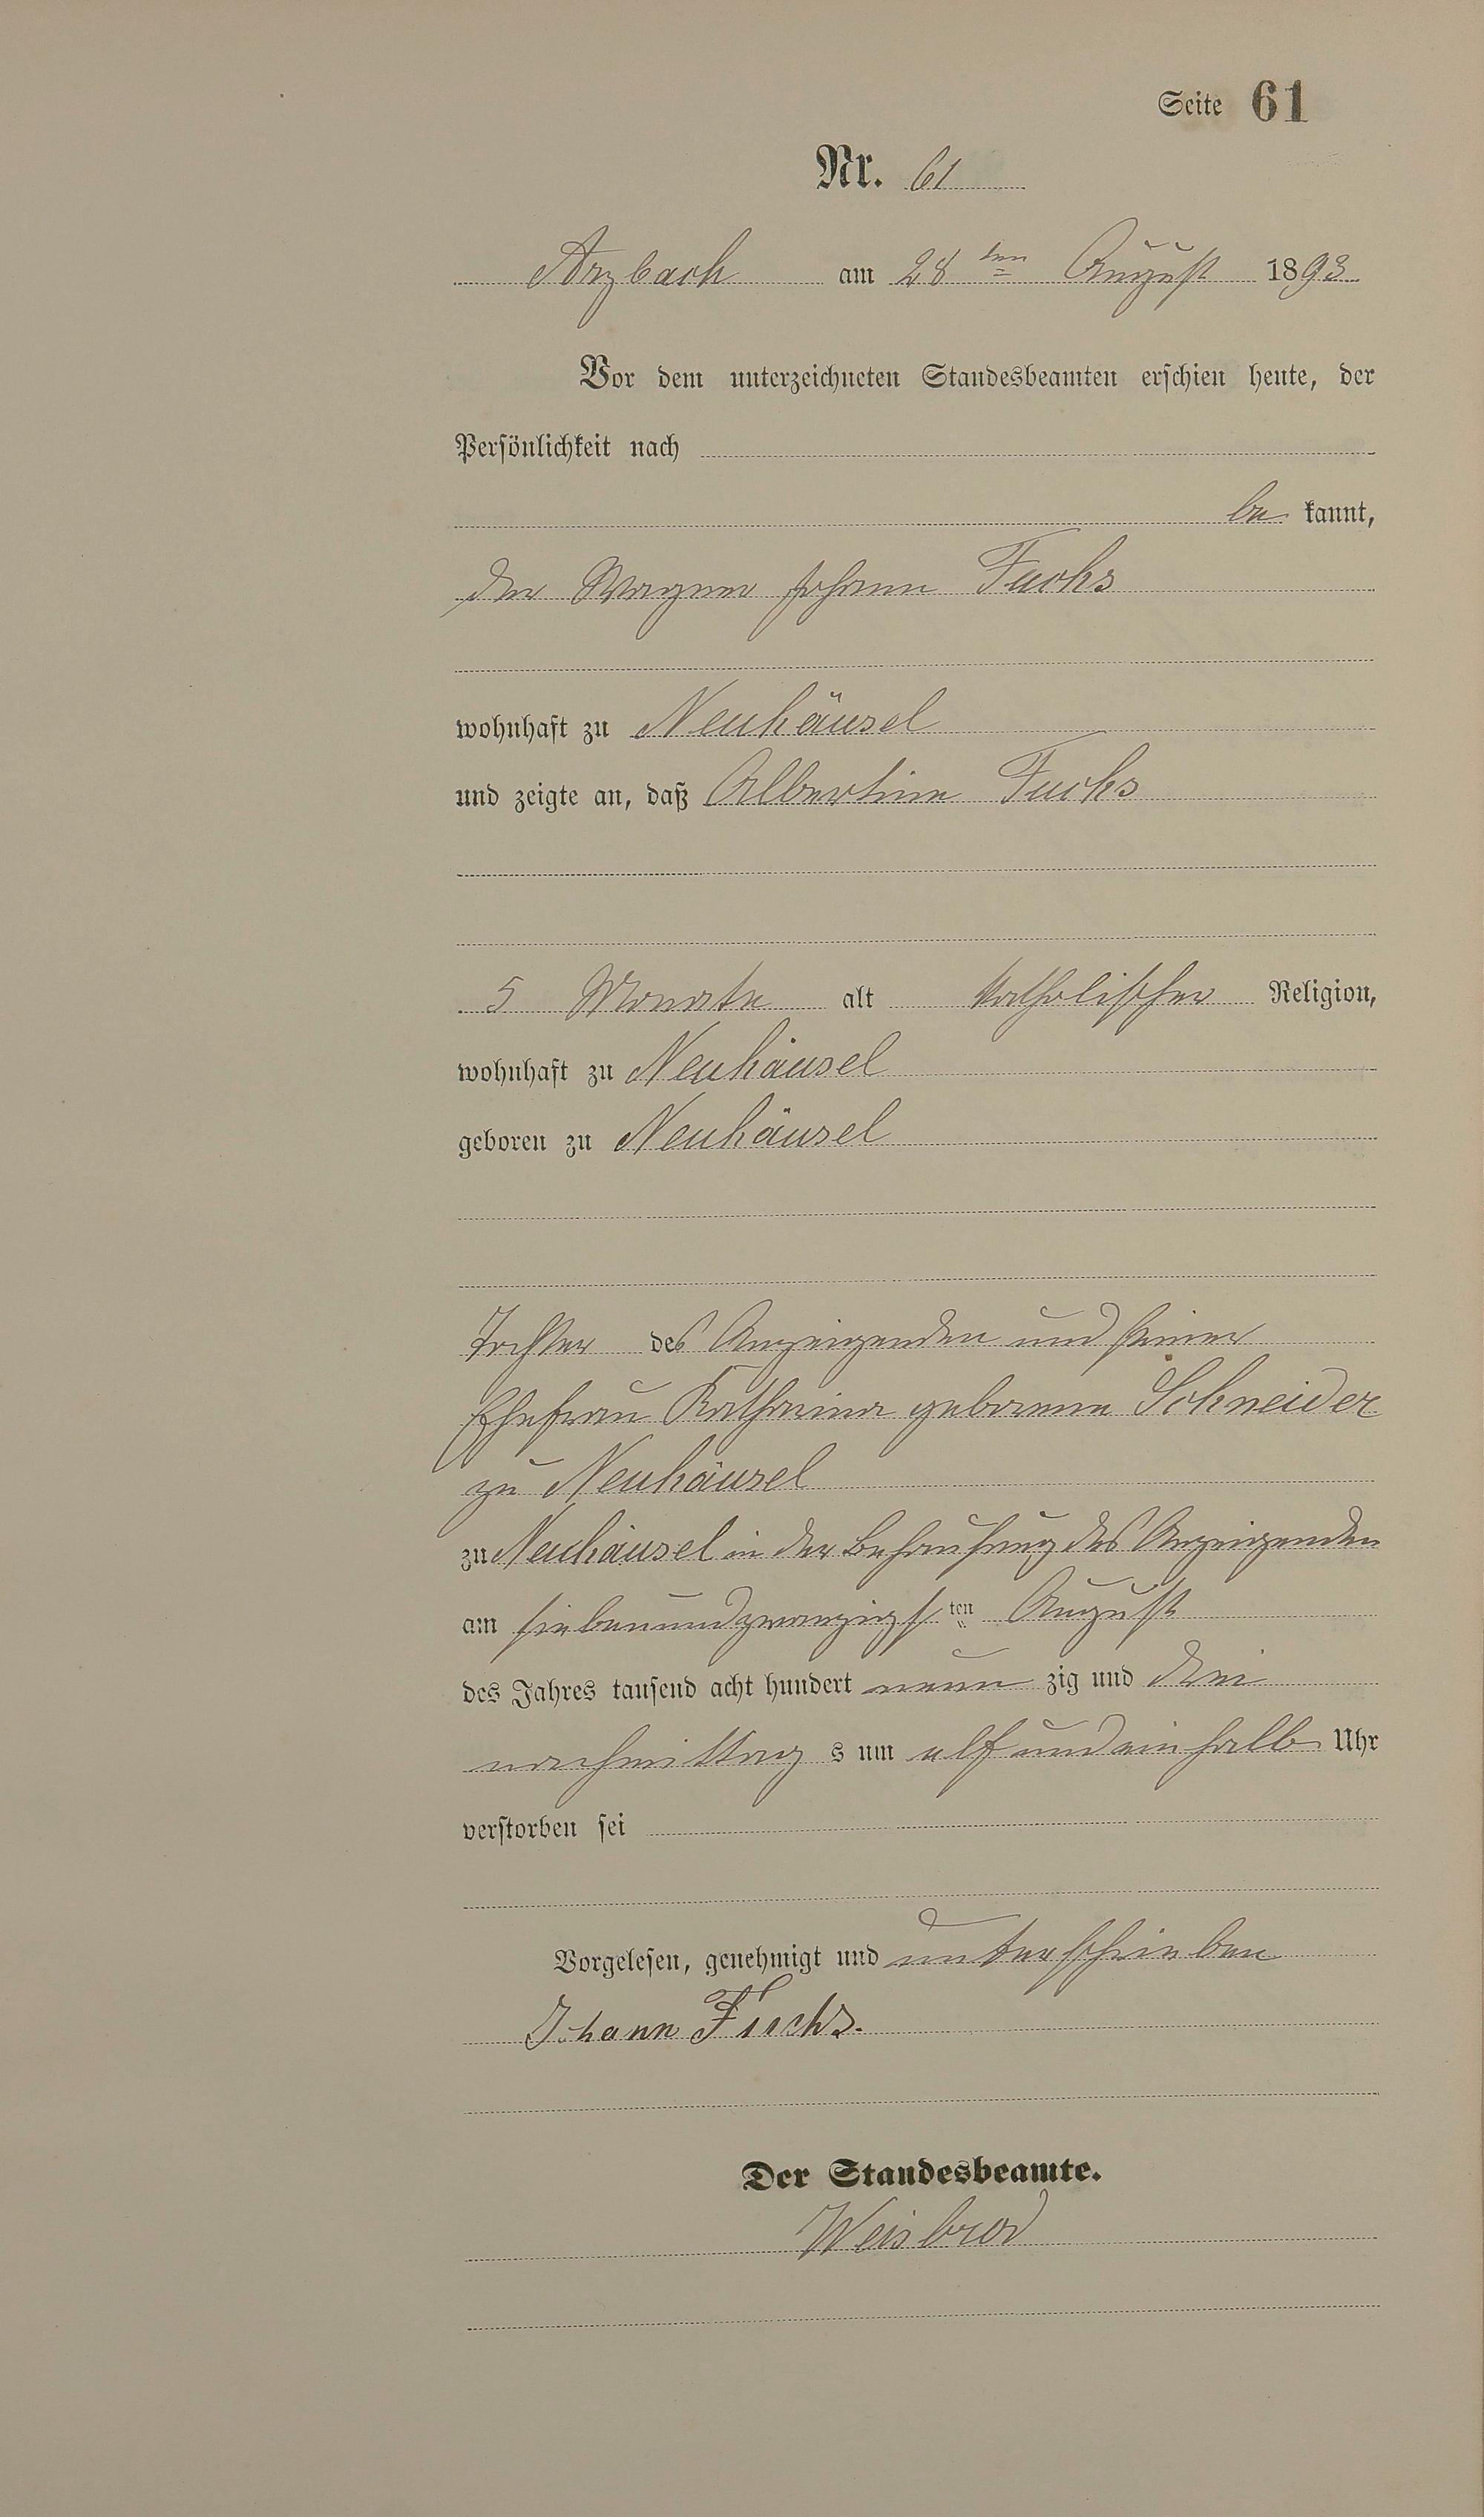 Seite 61
Nr. 61
Arzbach am 28ten August 1893
Vor dem unterzeichneten Standesbeamten erschien heute, der
Persönlichkeit nach
be kannt,
der Wagner Johann Fuchs
wohnhaft zu Neuhäusel
und zeigte an, daß Albertine Fuchs
5 Monate alt katholischer Religion,
wohnhaft zu Neuhäusel
geboren zu Neuhäusel
Tochter des Anzeigenden und seiner
Ehefrau Katharina geborene Schneider
zu Neuhäusel
zu Neuhäusel in der Behausung des Anzeigenden
am siebenundzwanzigsten August
des Jahres tausend acht hundert neun zig und drei
nachmittag s um elf und ein halb Uhr
verstorben sei
Vorgelesen, genehmigt und unterschrieben
Johann Fuchs.
Der Standesbeamte.
Weisbrod